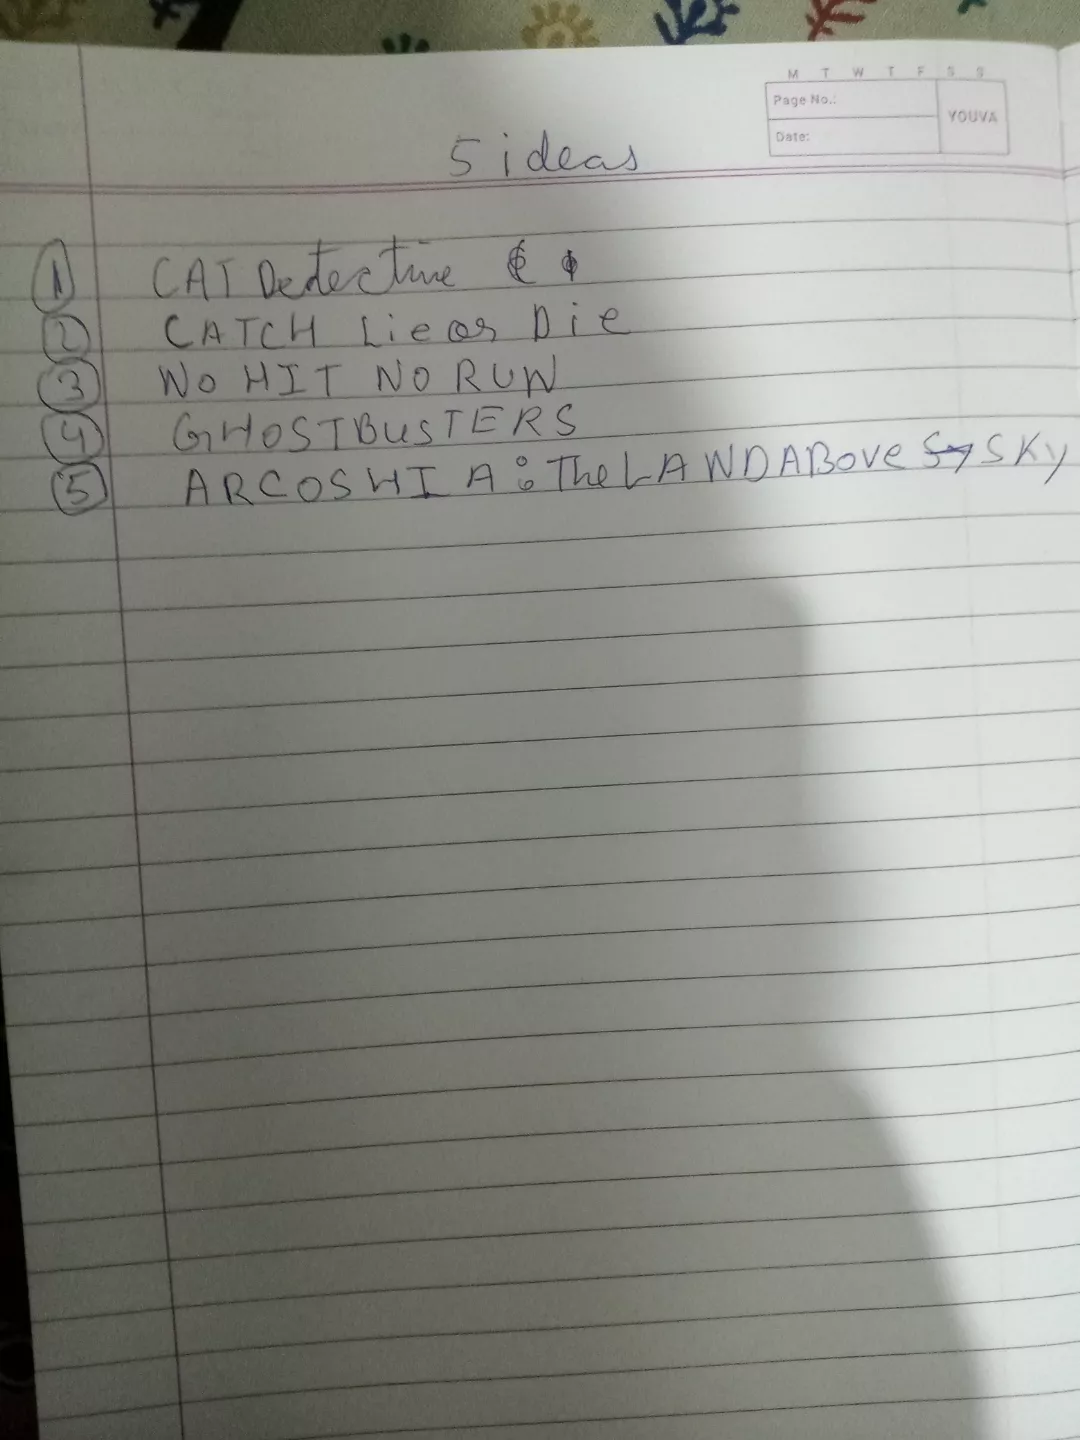 M T W T F S S
Page No.:
YOUVA
Date:
5 ideas
1 CAT Detective
2 CATCH Lie or Die
3 No HIT NO RUN
4 GHOSTBUSTERS
5 ARCOSHIA: The LANDABove SKY